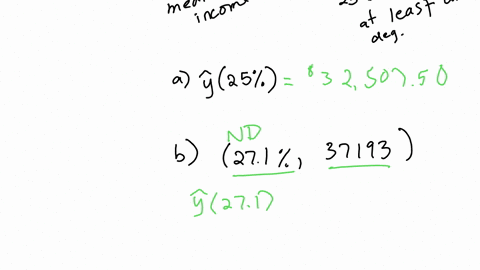 income at least
deg.
a) ŷ(25%) = $32,507.50
ND
b) (27.1%, 37193)
ŷ(27.1)